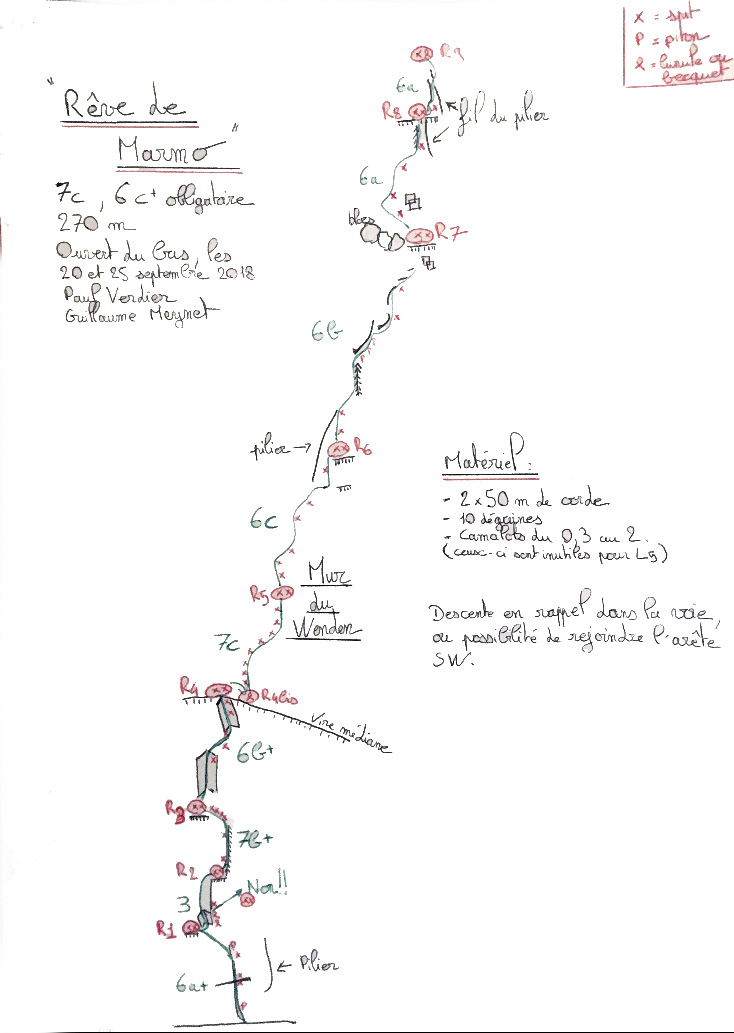 x = spit
P = piton
R = lunule ou
becquet
"Rêve de
Marmo"
7c, 6c+ obligatoire
270 m
Ouvert du bas, les
20 et 25 septembre 2018
Paul Verdier
Guillaume Meynet
R9
6a
R8
fil du pilier
6a
blocs
R7
6b
pilier →
R6
6c
Mur
du
Wenden
R5
7c
R4
R4bis
Vire médiane
6b+
R3
7b+
R2
3
Non!!
R1
← Pilier
6a+
Matériel:
- 2x50 m de corde
- 10 dégaines
- Camalots du 0,3 au 2.
(ceux-ci sont inutiles pour L5)
Descente en rappel dans la voie,
ou possibilité de rejoindre l'arête
SW.